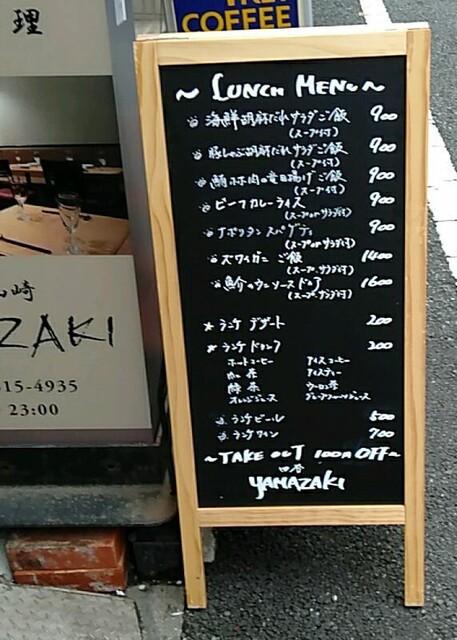 COFFEE
理
~ LUNCH MENU ~
海鮮胡麻だれサラダご飯 900
(スープ付)
豚しゃぶ胡麻だれサラダご飯 900
(スープ付)
鯖ホホ肉の竜田揚げご飯 900
(スープ付)
ビーフカレーライス 900
(スープorサラダ付)
ナポリタンスパゲティ 900
(スープorサラダ付)
ズワイガニご飯 1400
(スープ、サラダ付)
1600
(スープ、サラダ付)
★ ランチ デザート 200
★ ランチ ドリンク 200
ホットコーヒー アイスコーヒー
紅茶 アイスティー
緑茶 ウーロン茶
オレンジジュース グレープフルーツジュース
ランチビール 500
ランチワイン 700
~TAKE OUT 100円 OFF~
四谷
YAMAZAKI
崎
ZAKI
615-4935
23:00